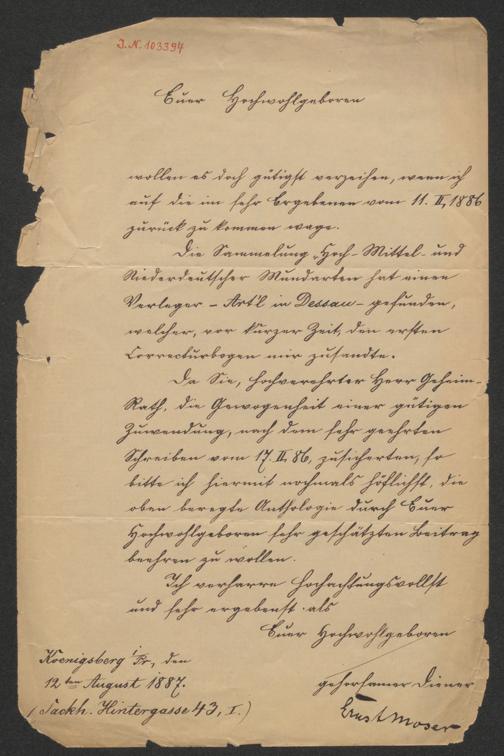 J.N. 103394
Euer Hochwohlgeboren
wollen es doch gütigst verzeihen, wenn ich
auf die im sehr Ergebenen vom 11. II, 1886
zurück zu kommen wage.
Die Sammelung „Hoch- Mittel- und
Niederdeutscher Mundarten hat einen
Verleger – Art'l in Dessau – gefunden,
welcher, vor kurzer Zeit, den ersten
Correcturbogen mir zusandte.
Da Sie, hochverehrter Herr Geheim-
Rath, die Gewogenheit einer gütigen
Zuwendung, nach dem sehr geehrten
Schreiben vom 17. II. 86, zusicherten, so
bitte ich hiermit nochmals höflichst, die
oben beregte Anthologie durch Euer
Hochwohlgeboren sehr geschätzten Beitrag
beehren zu wollen.
Ich verharre hochachtungsvollst
und sehr ergebenst als
Euer Hochwohlgeboren
gehorsamer Diener
Ernst Moser
Koenigsberg i/Pr., den
12ten August 1887.
(Sackh. Hintergasse 43, I.)